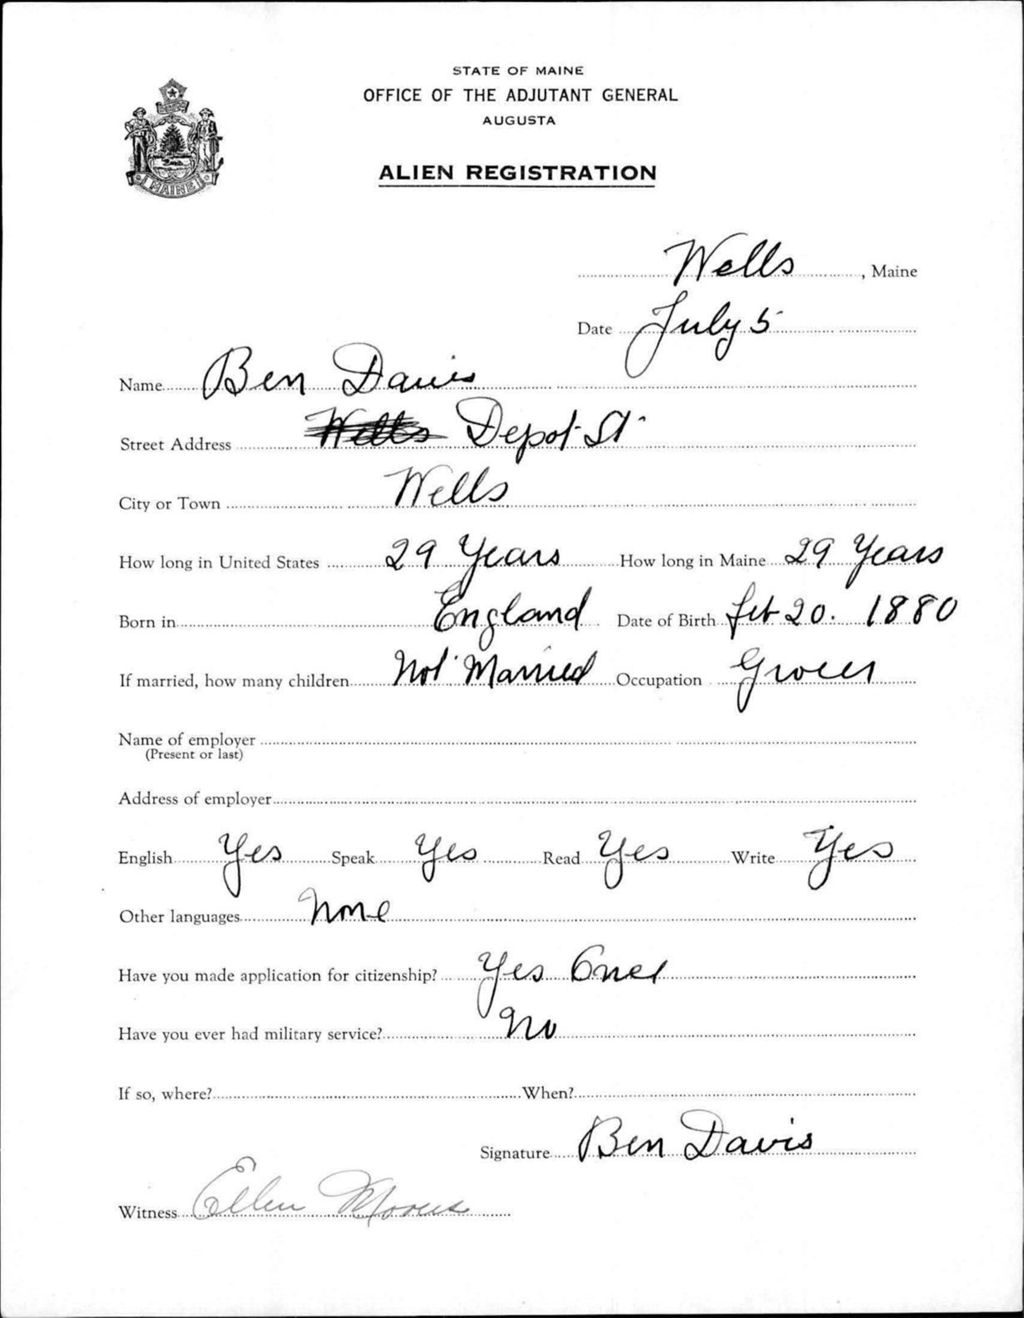 STATE OF MAINE
OFFICE OF THE ADJUTANT GENERAL
AUGUSTA
ALIEN REGISTRATION
MAINE
Wells, Maine
Date July 5
Name Ben Davis
Street Address Wells Depot St
City or Town Wells
How long in United States 29 Years How long in Maine 29 Years
Born in England Date of Birth Feb 20. 1880
If married, how many children Not Married Occupation Grocer
Name of employer
(Present or last)
Address of employer
English Yes Speak Yes Read Yes Write Yes
Other languages None
Have you made application for citizenship? Yes
Have you ever had military service? No
If so, where? When?
Signature Ben Davis
Witness Ellen